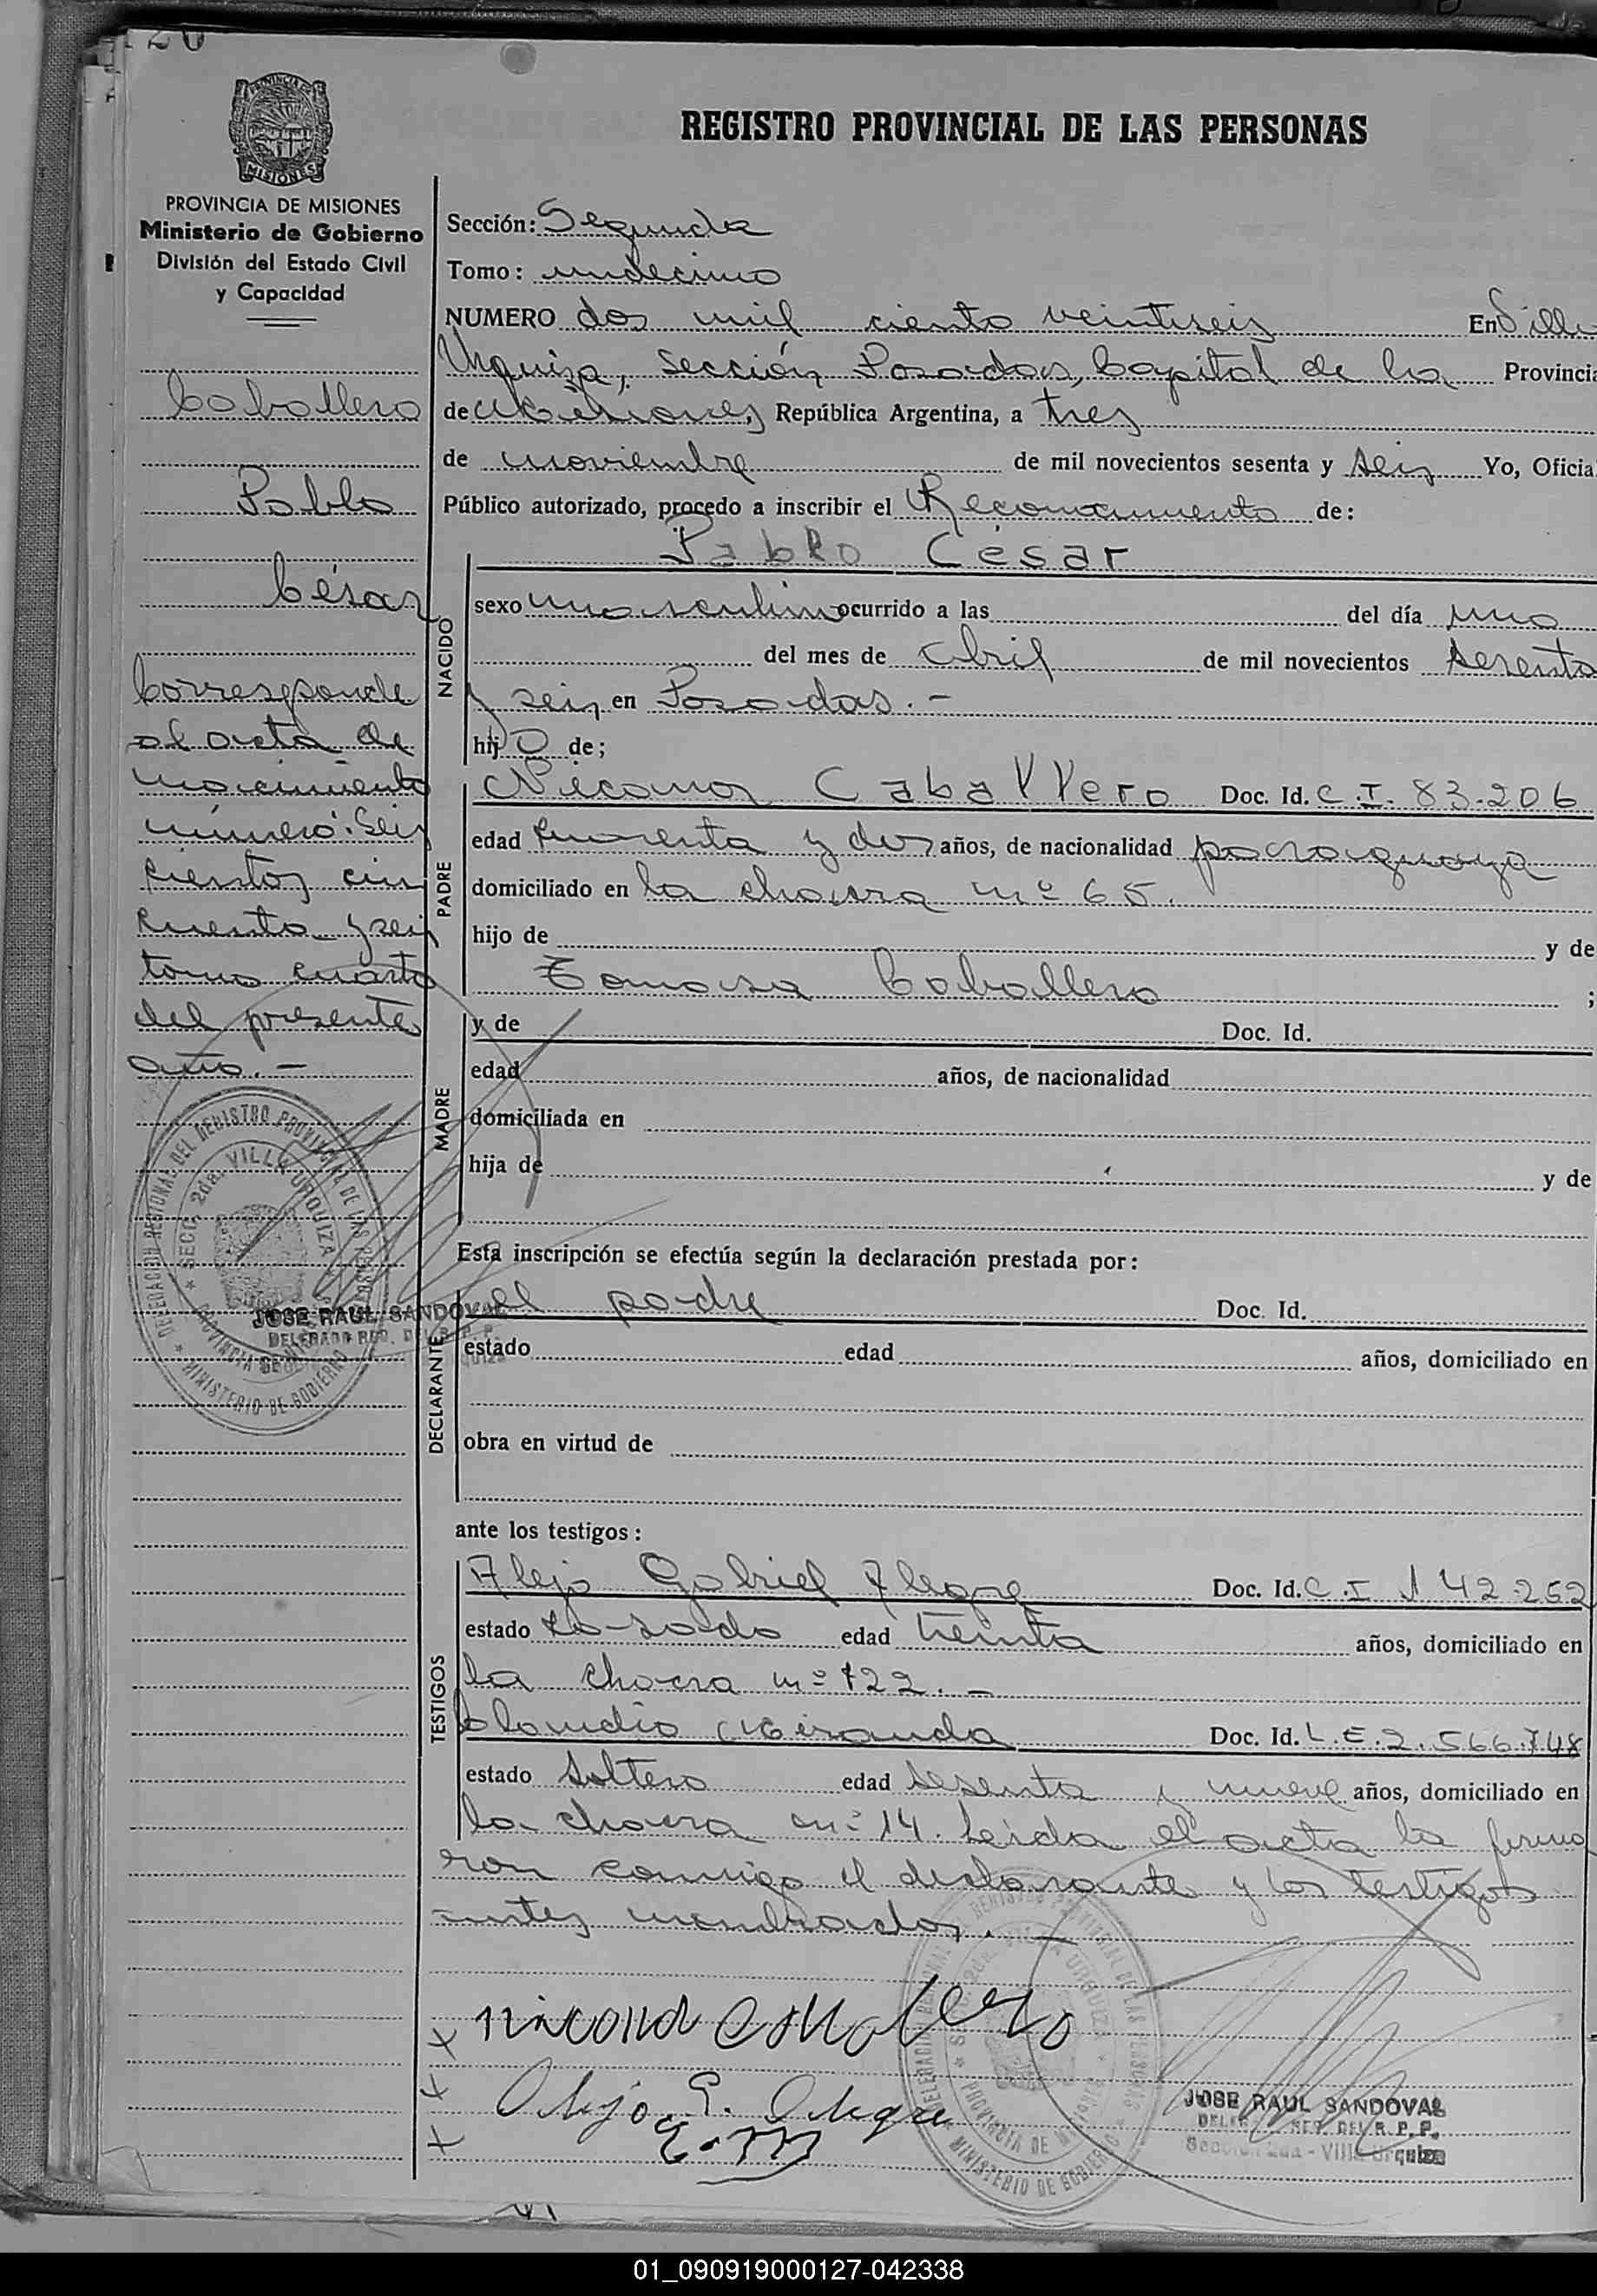 REGISTRO PROVINCIAL DE LAS PERSONAS
PROVINCIA DE MISIONES
Ministerio de Gobierno
División del Estado Civil
y Capacidad
Caballero
Pablo
César
Corresponde
al acta de
nacimiento
número: Seis
cientos cin
cuenta y seis
tomo cuarto
del presente
año. -
DELEGACION REGIONAL DEL REGISTRO PROVINCIAL DE LAS PERSONAS
SECC. 2da. VILLA URQUIZA
PROVINCIA DE MISIONES
MINISTERIO DE GOBIERNO
JOSE RAUL SANDOVAL
DELEGADO REG. DEL R. P. P.
Sección: Segunda
Tomo: undecimo
NUMERO dos mil ciento veintiseis En Villa
Urquiza, Sección Posadas, Capital de la Provincia
de Misiones, República Argentina, a tres
de noviembre de mil novecientos sesenta y seis Yo, Oficial
Público autorizado, procedo a inscribir el Reconocimiento de:
NACIDO
Pablo César
sexo masculino ocurrido a las del día uno
del mes de Abril de mil novecientos sesenta
y seis en Posadas. -
hijo de;
PADRE
Nicanor Caballero Doc. Id. C.I. 83.206
edad cuarenta y dos años, de nacionalidad paraguaya
domiciliado en la chacra nº 65.
hijo de y de
Tomasa Caballero ;
MADRE
y de Doc. Id.
edad años, de nacionalidad
domiciliada en
hija de y de
Esta inscripción se efectúa según la declaración prestada por:
DECLARANTE
el padre Doc. Id.
estado edad años, domiciliado en
obra en virtud de
ante los testigos:
TESTIGOS
Alejo Gabriel Alegre Doc. Id. C.I 142.252
estado casado edad treinta años, domiciliado en
la chacra nº 122. -
Claudio Miranda Doc. Id. L.E. 2.566.748
estado soltero edad sesenta y nueve años, domiciliado en
la chacra nº 14. Leida el acta la firma
ron conmigo el declarante y los testigos
antes nombrados. -
x nicanor caballero
x Alejo G. Alegre
x
DELEGACION REGIONAL DEL REGISTRO PROVINCIAL DE LAS PERSONAS
SECC. 2da. VILLA URQUIZA
PROVINCIA DE MISIONES
MINISTERIO DE GOBIERNO
JOSE RAUL SANDOVAL
DELEGADO REG. DEL R. P. P.
Sección 2da - Villa Urquiza
01_090919000127-042338